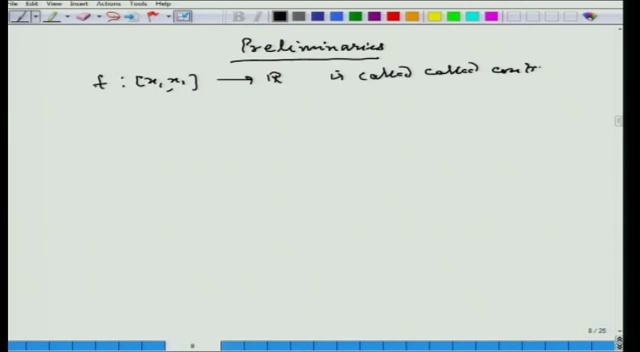 File Edit View Insert Actions Tools Help
Preliminaries
f : [x₁ x₁] → ℝ is called called conti
8 / 25
8